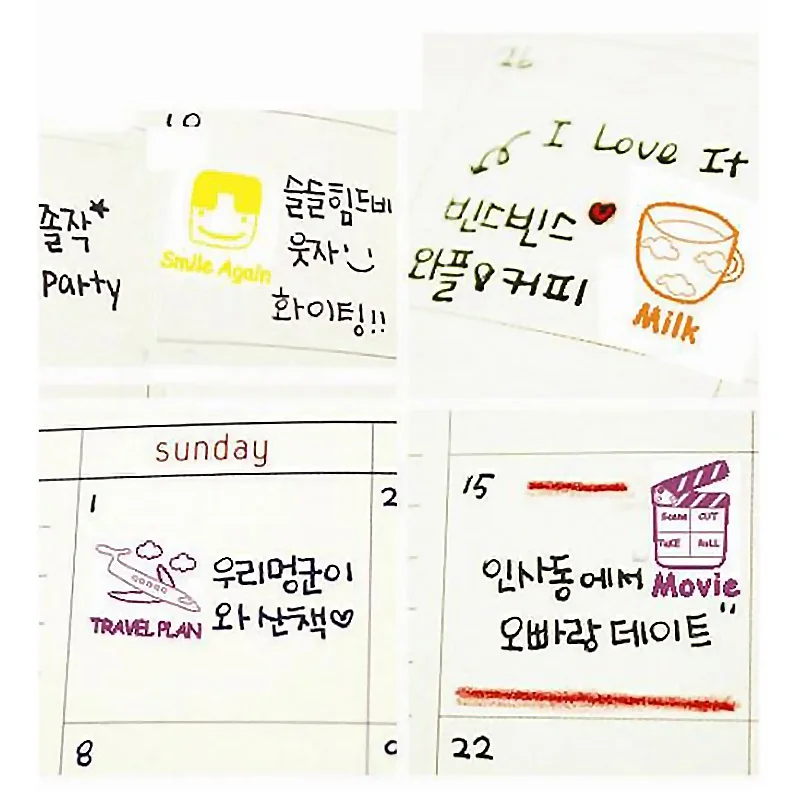 10
졸작*
Party
Smile Again
슬슬힘드비
웃자
화이팅!!
26
I Love It
빈스빈스
와플&커피
Milk
sunday
1
2
TRAVEL PLAN
우리멍군이
와 산책♡
8
15
Scene CUT
TAKE ROLL
Movie
인사동에서
오빠랑 데이트"
22